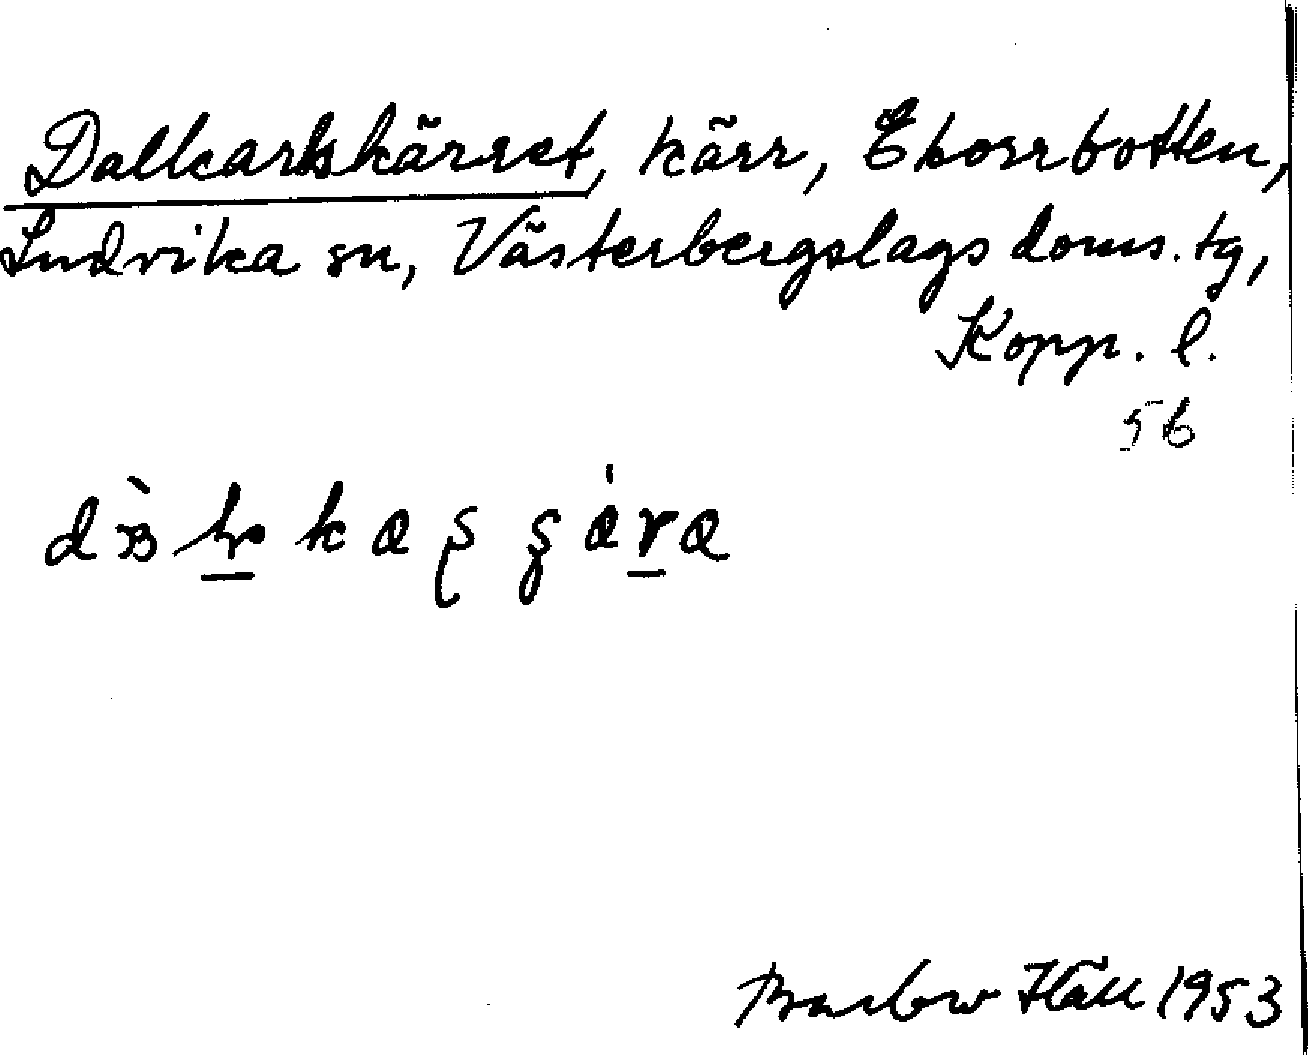 Dalkarlskärret, kärr, Eborrbotten,
Ludvika sn, Västerbergslags doms. tg,
Kopp. l.
56
Barbro Häll 1953